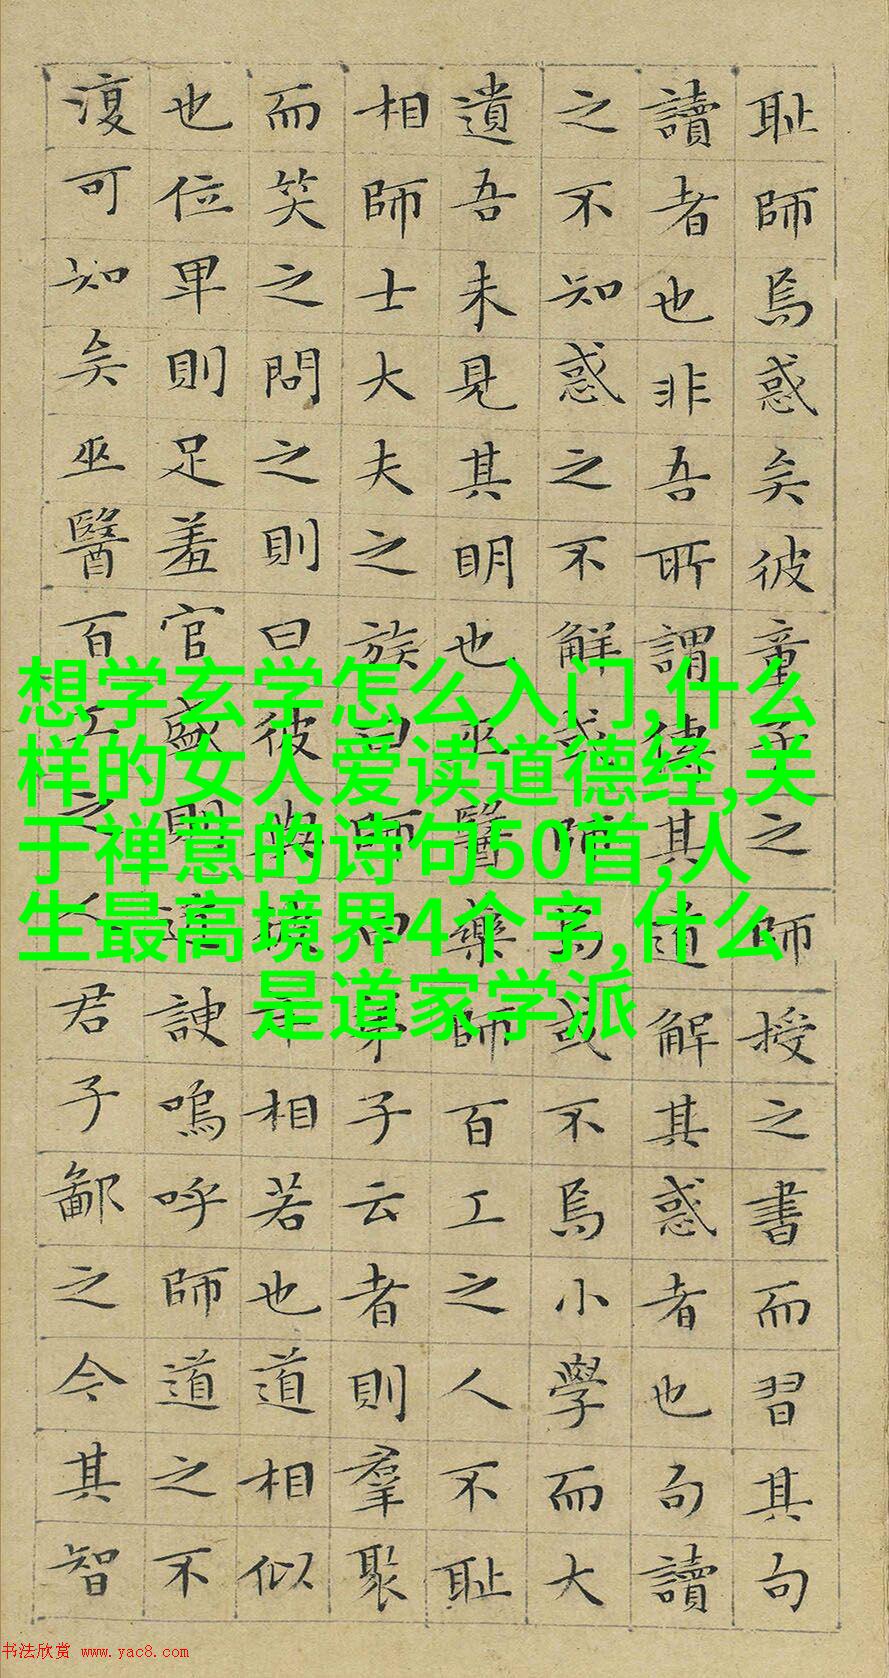 耻師焉惑矣彼童子之師授之書而習其句
讀者也非吾所謂傳其道解其惑者也句讀
之不知惑之不解或師焉或不焉小學而大
遺吾未見其明也巫醫藥師百工之人不耻
相師士大夫之族曰師曰弟子云者則羣聚
而笑之問之則曰彼與彼年相若也道相似
也位卑則足羞官盛則近諛嗚呼師道之不
復可知矣巫醫百工之人君子鄙之今其智
想学玄学怎么入门,什么
样的女人爱读道德经,关
于禅意的诗句50首,人
生最高境界4个字,什么
是道家学派
书法欣赏 www.yac8.com